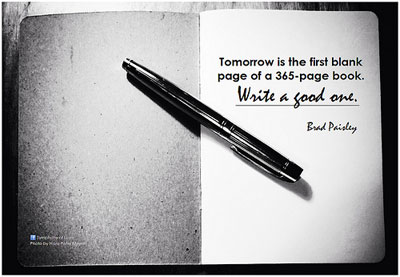 Tomorrow is the first blank
page of a 365-page book.
Write a good one.
Brad Paisley
Symphony of Love